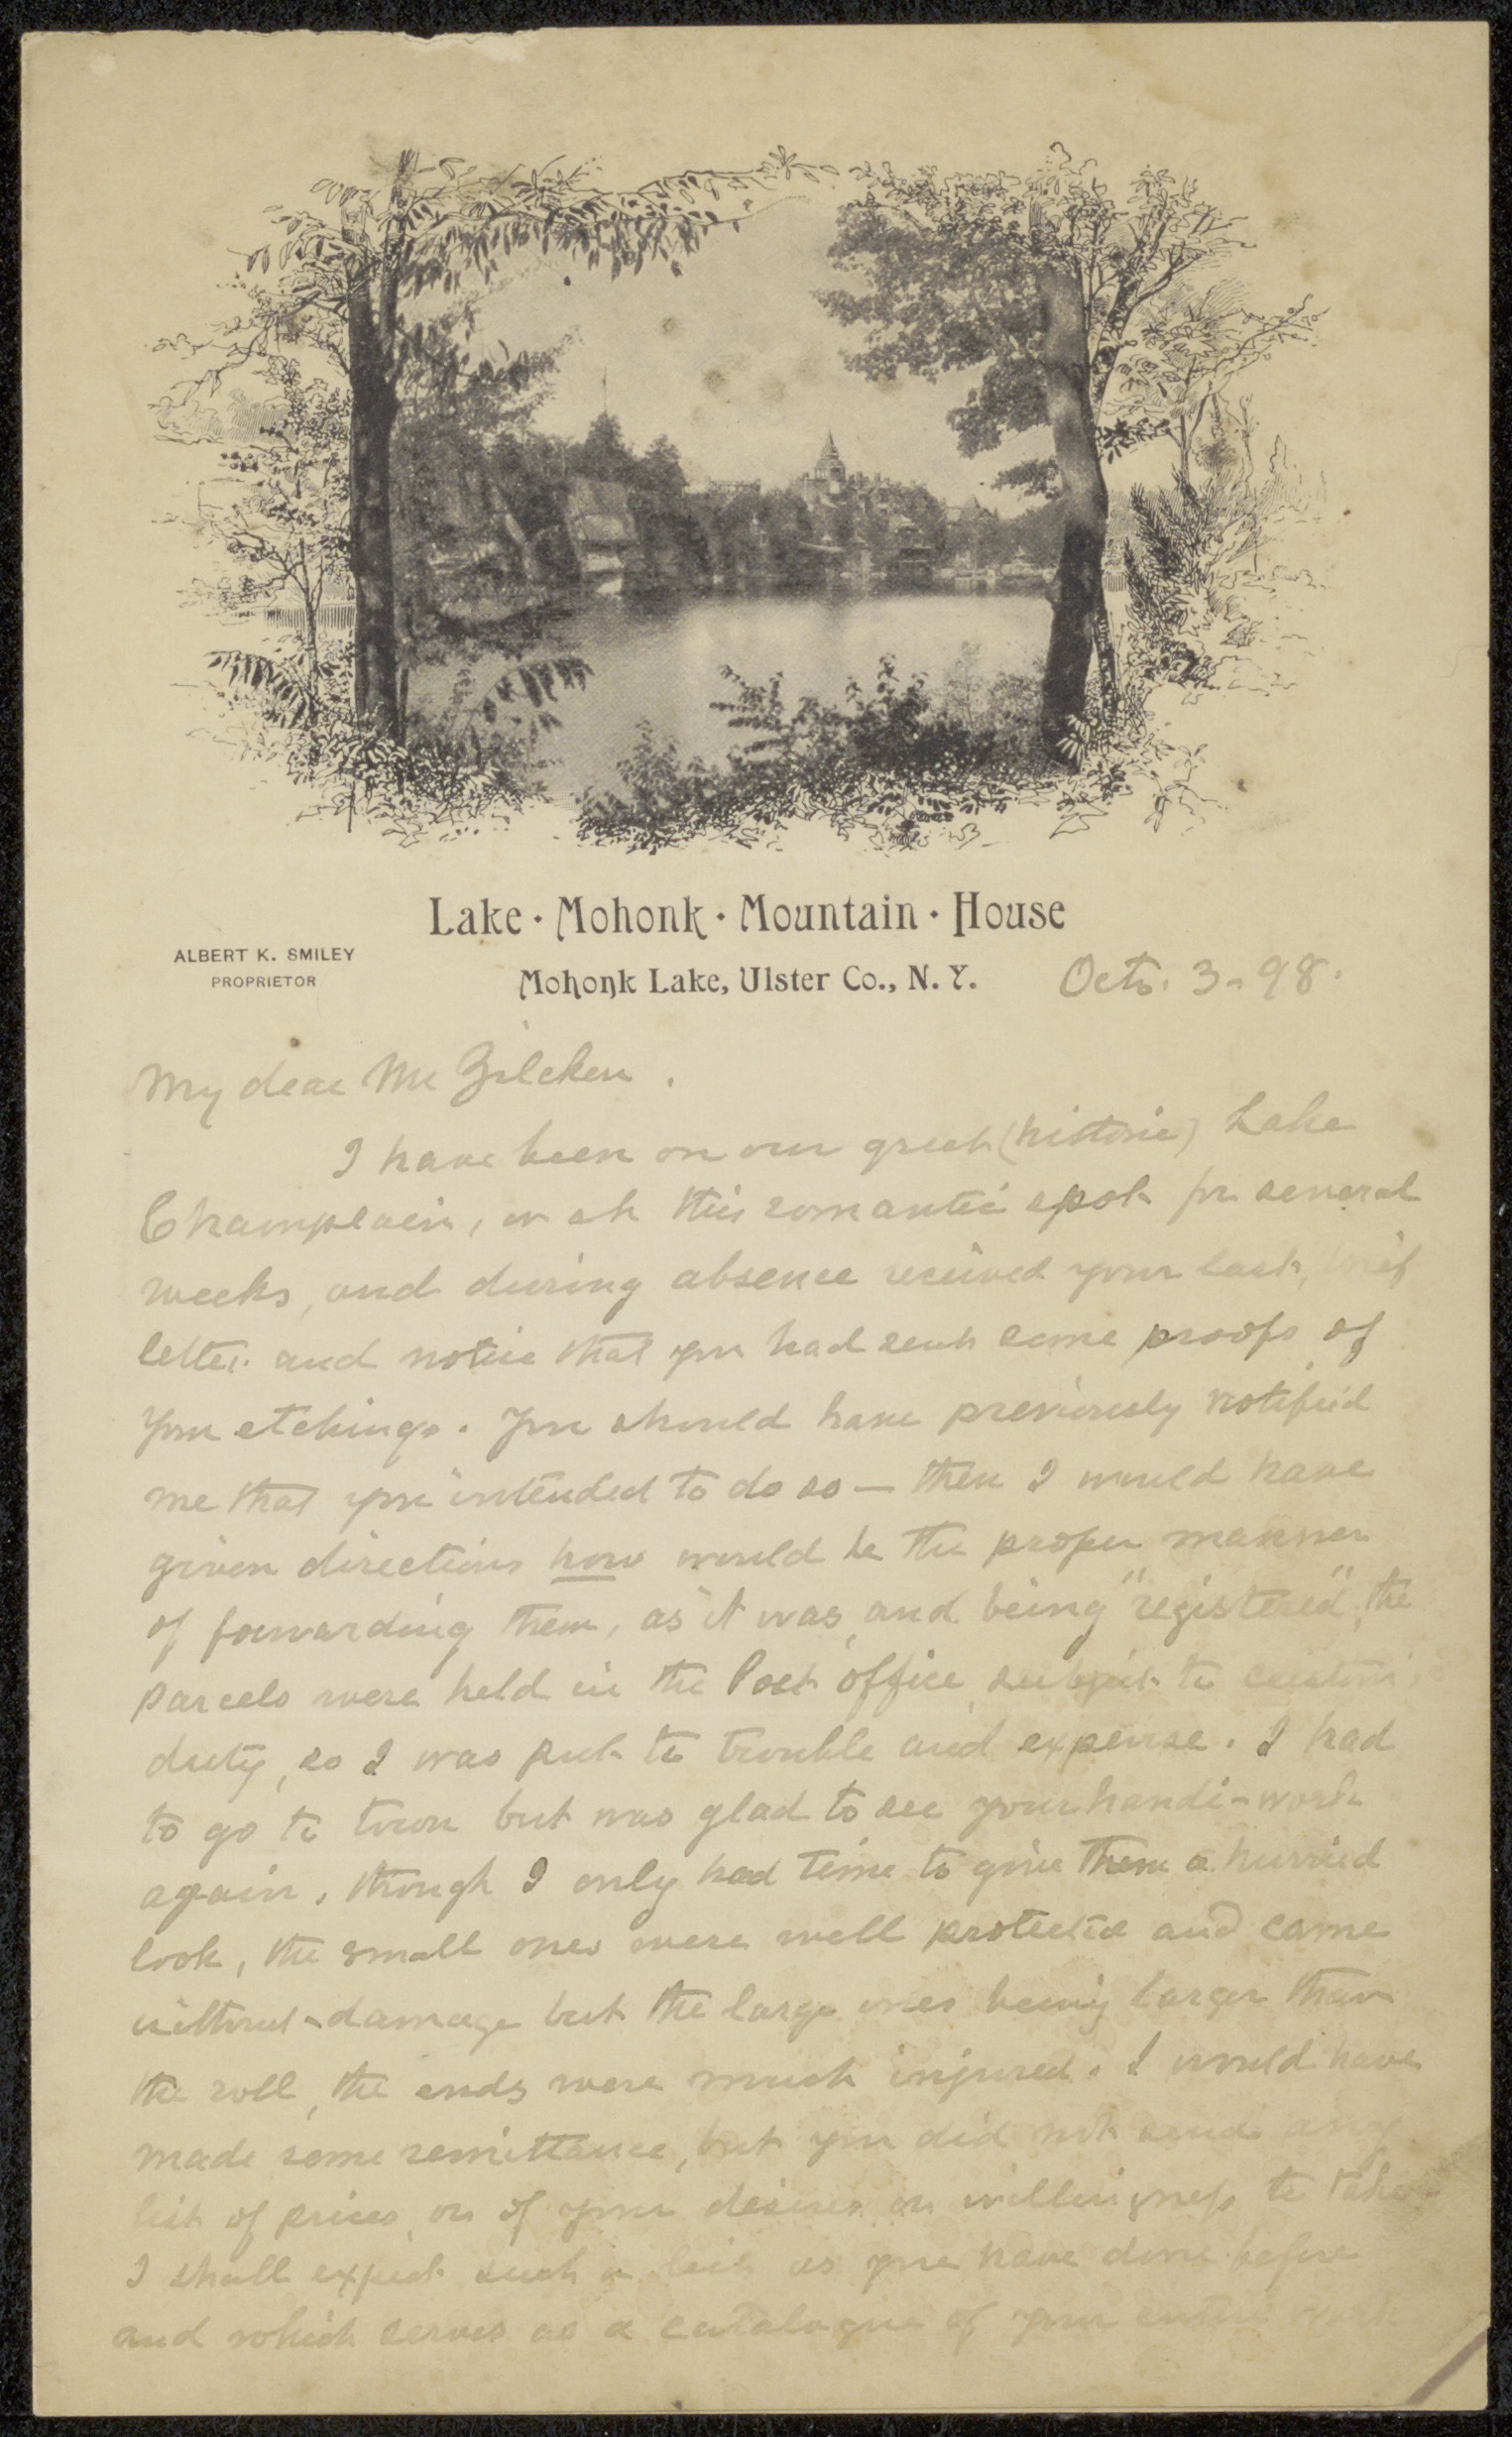 Lake · Mohonk · Mountain · House
ALBERT K. SMILEY
PROPRIETOR
Mohonk Lake, Ulster Co., N. Y.
Octo. 3 - 98.
My dear Mr Zilcken.
I have been on our great (historic) Lake
Champlain, or at this romantic spot for several
weeks, and during absence received your last, brief
letter and notice that you had sent some proofs of
your etchings. You should have previously notified
me that you intended to do so — then I would have
given directions how would be the proper manner
of forwarding them, as it was, and being "registered", the
parcels were held in the Post office subject to customs
duty, so I was put to trouble and expense. I had
to go to town but was glad to see your handi-work
again, though I only had time to give them a hurried
look, the small ones were well protected and came
without damage but the large ones being larger than
the roll, the ends were much injured. I would have
made some remittance, but you did not send any
list of prices, or of your desires or willingness to take
I shall expect such a list as you have done before
and which serves as a catalogue of your entire work